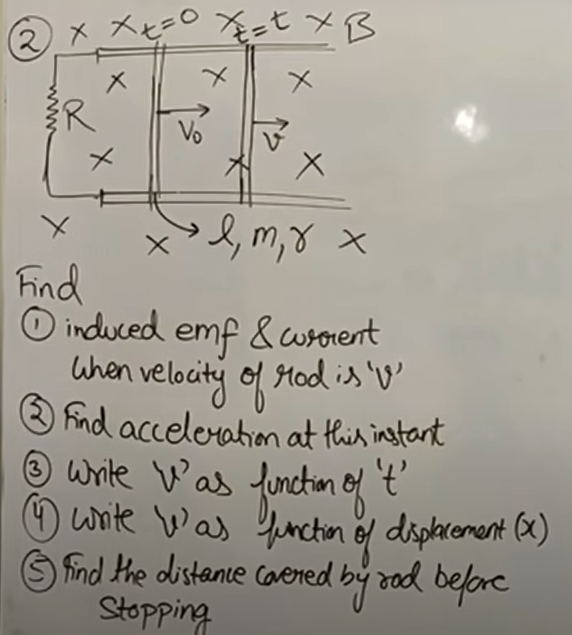 ② x x t=0 x t=t x B
x x x
R
V₀ v
x x x
x x → l, m, r x
Find
① induced emf & current
when velocity of rod is 'v'
② Find acceleration at this instant
③ Write 'v' as function of 't'
④ Write 'v' as function of displacement (x)
⑤ find the distance covered by rod before
Stopping